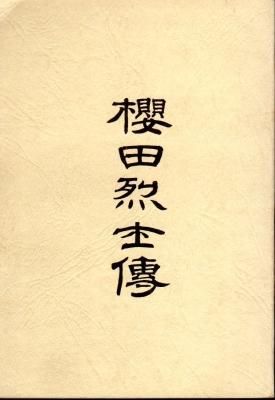 櫻田烈士傳